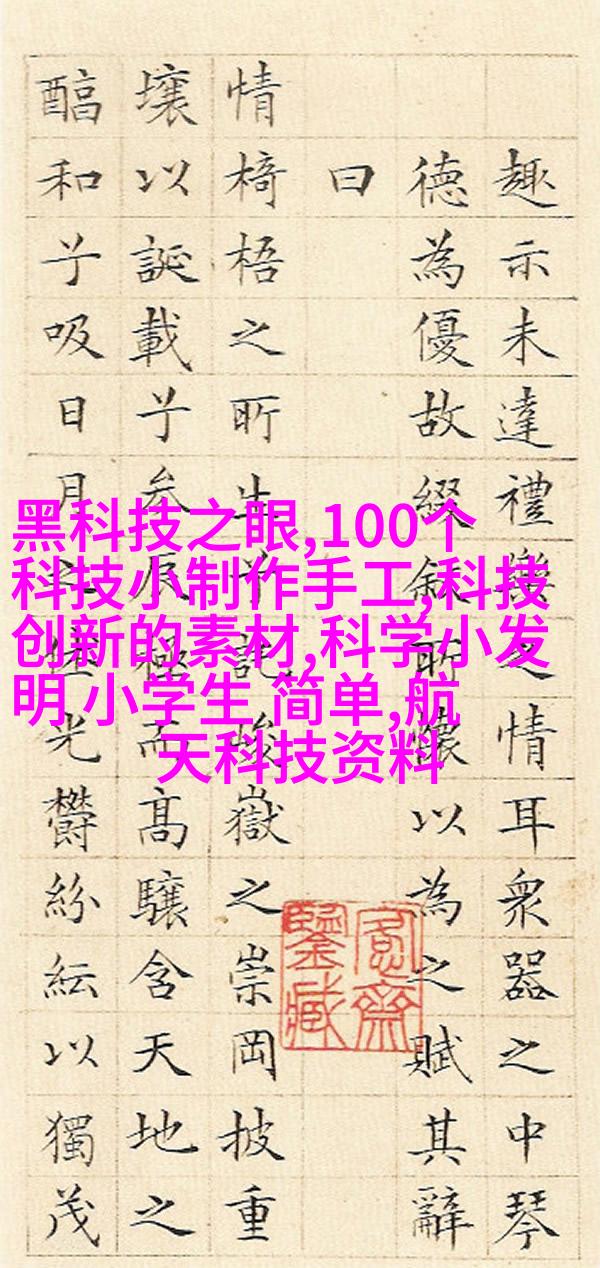 趣示未達禮樂之情耳衆器之中琴
德為優故綴叙所懷以為之賦其辭
曰
情椅梧之所生兮託峻嶽之崇岡披重
壤以誕載兮参辰極而高驤含天地之
醕和兮吸日月之光鬱紛紜以獨茂
黑科技之眼,100个
科技小制作手工,科技
创新的素材,科学小发
明 小学生 简单,航
天科技资料
愙齋
鑒藏